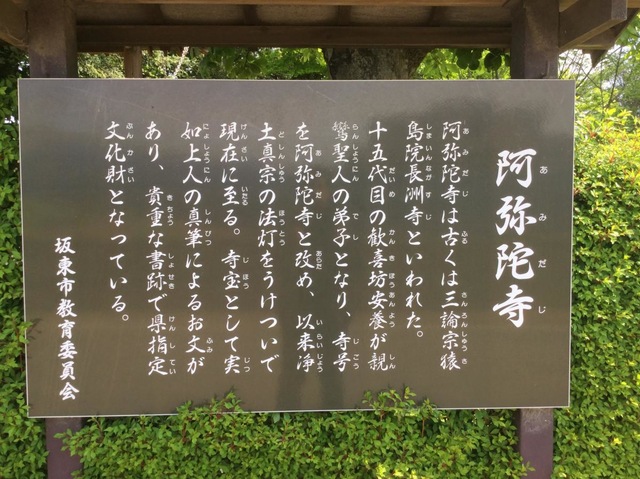 阿弥陀寺
あみだじ
阿弥陀寺は古くは三論宗猿
島院長洲寺といわれた。
十五代目の歓喜坊安養が親
鸞聖人の弟子となり、寺号
を阿弥陀寺と改め、以来浄
土真宗の法灯をうけついで
現在に至る。寺宝として実
如上人の真筆によるお文が
あり、貴重な書跡で県指定
文化財となっている。
坂東市教育委員会